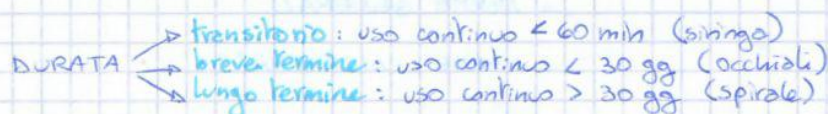 transitorio: uso continuo < 60 min (siringa)
DURATA breve termine: uso continuo < 30 gg (occhiali)
lungo termine: uso continuo > 30 gg (spirale)